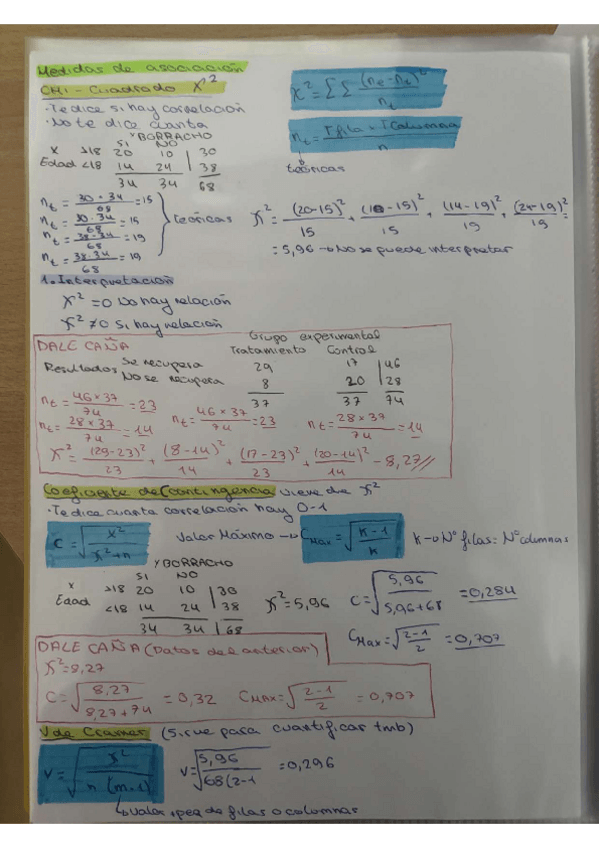 Medidas de asociación
CHI-Cuadrado X²
X² = ΣΣ (ne-nt)² / nt
· Te dice si hay correlación
· No te dice cuanta
nt = T fila × T Columna / n
teóricas
Y BORRACHO
SI NO
X >18 20 10 | 30
Edad <18 14 24 | 38
34 34 68
nt = 30·34 / 68 = 15
nt = 30·34 / 68 = 15
nt = 38·34 / 68 = 19
nt = 38·34 / 68 = 19
teóricas
X² = (20-15)² / 15 + (10-15)² / 15 + (14-19)² / 19 + (24-19)² / 19 =
= 5,96 → No se puede interpretar
1. Interpretación
X² = 0 No hay relación
X² ≠ 0 Si hay relación
DALE CAÑA
Grupo experimental
Tratamiento Control
Resultados Se recupera 29 17 | 46
No se recupera 8 20 | 28
37 37 74
nt = 46×37 / 74 = 23 nt = 46×37 / 74 = 23 nt = 28×37 / 74 = 14
nt = 28×37 / 74 = 14
X² = (29-23)² / 23 + (8-14)² / 14 + (17-23)² / 23 + (20-14)² / 14 = 8,27//
Coeficiente de Contingencia viene de X²
· Te dice cuanta correlación hay 0-1
C = √ X² / X²+n Valor Máximo → CMax = √ K-1 / K K → Nº filas = Nº columnas
Y BORRACHO
SI NO
X >18 20 10 | 30
Edad <18 14 24 | 38
34 34 | 68
X² = 5,96 C = √ 5,96 / 5,96+68 = 0,284
CMax = √ 2-1 / 2 = 0,707
DALE CAÑA (Datos del anterior)
X² = 8,27
C = √ 8,27 / 8,27+74 = 0,32 CMAX = √ 2-1 / 2 = 0,707
V de Cramer (Sirve para cuantificar tmb)
V = √ X² / n (m-1) V = √ 5,96 / 68(2-1 = 0,296
↳ valor + peq de filas o columnas